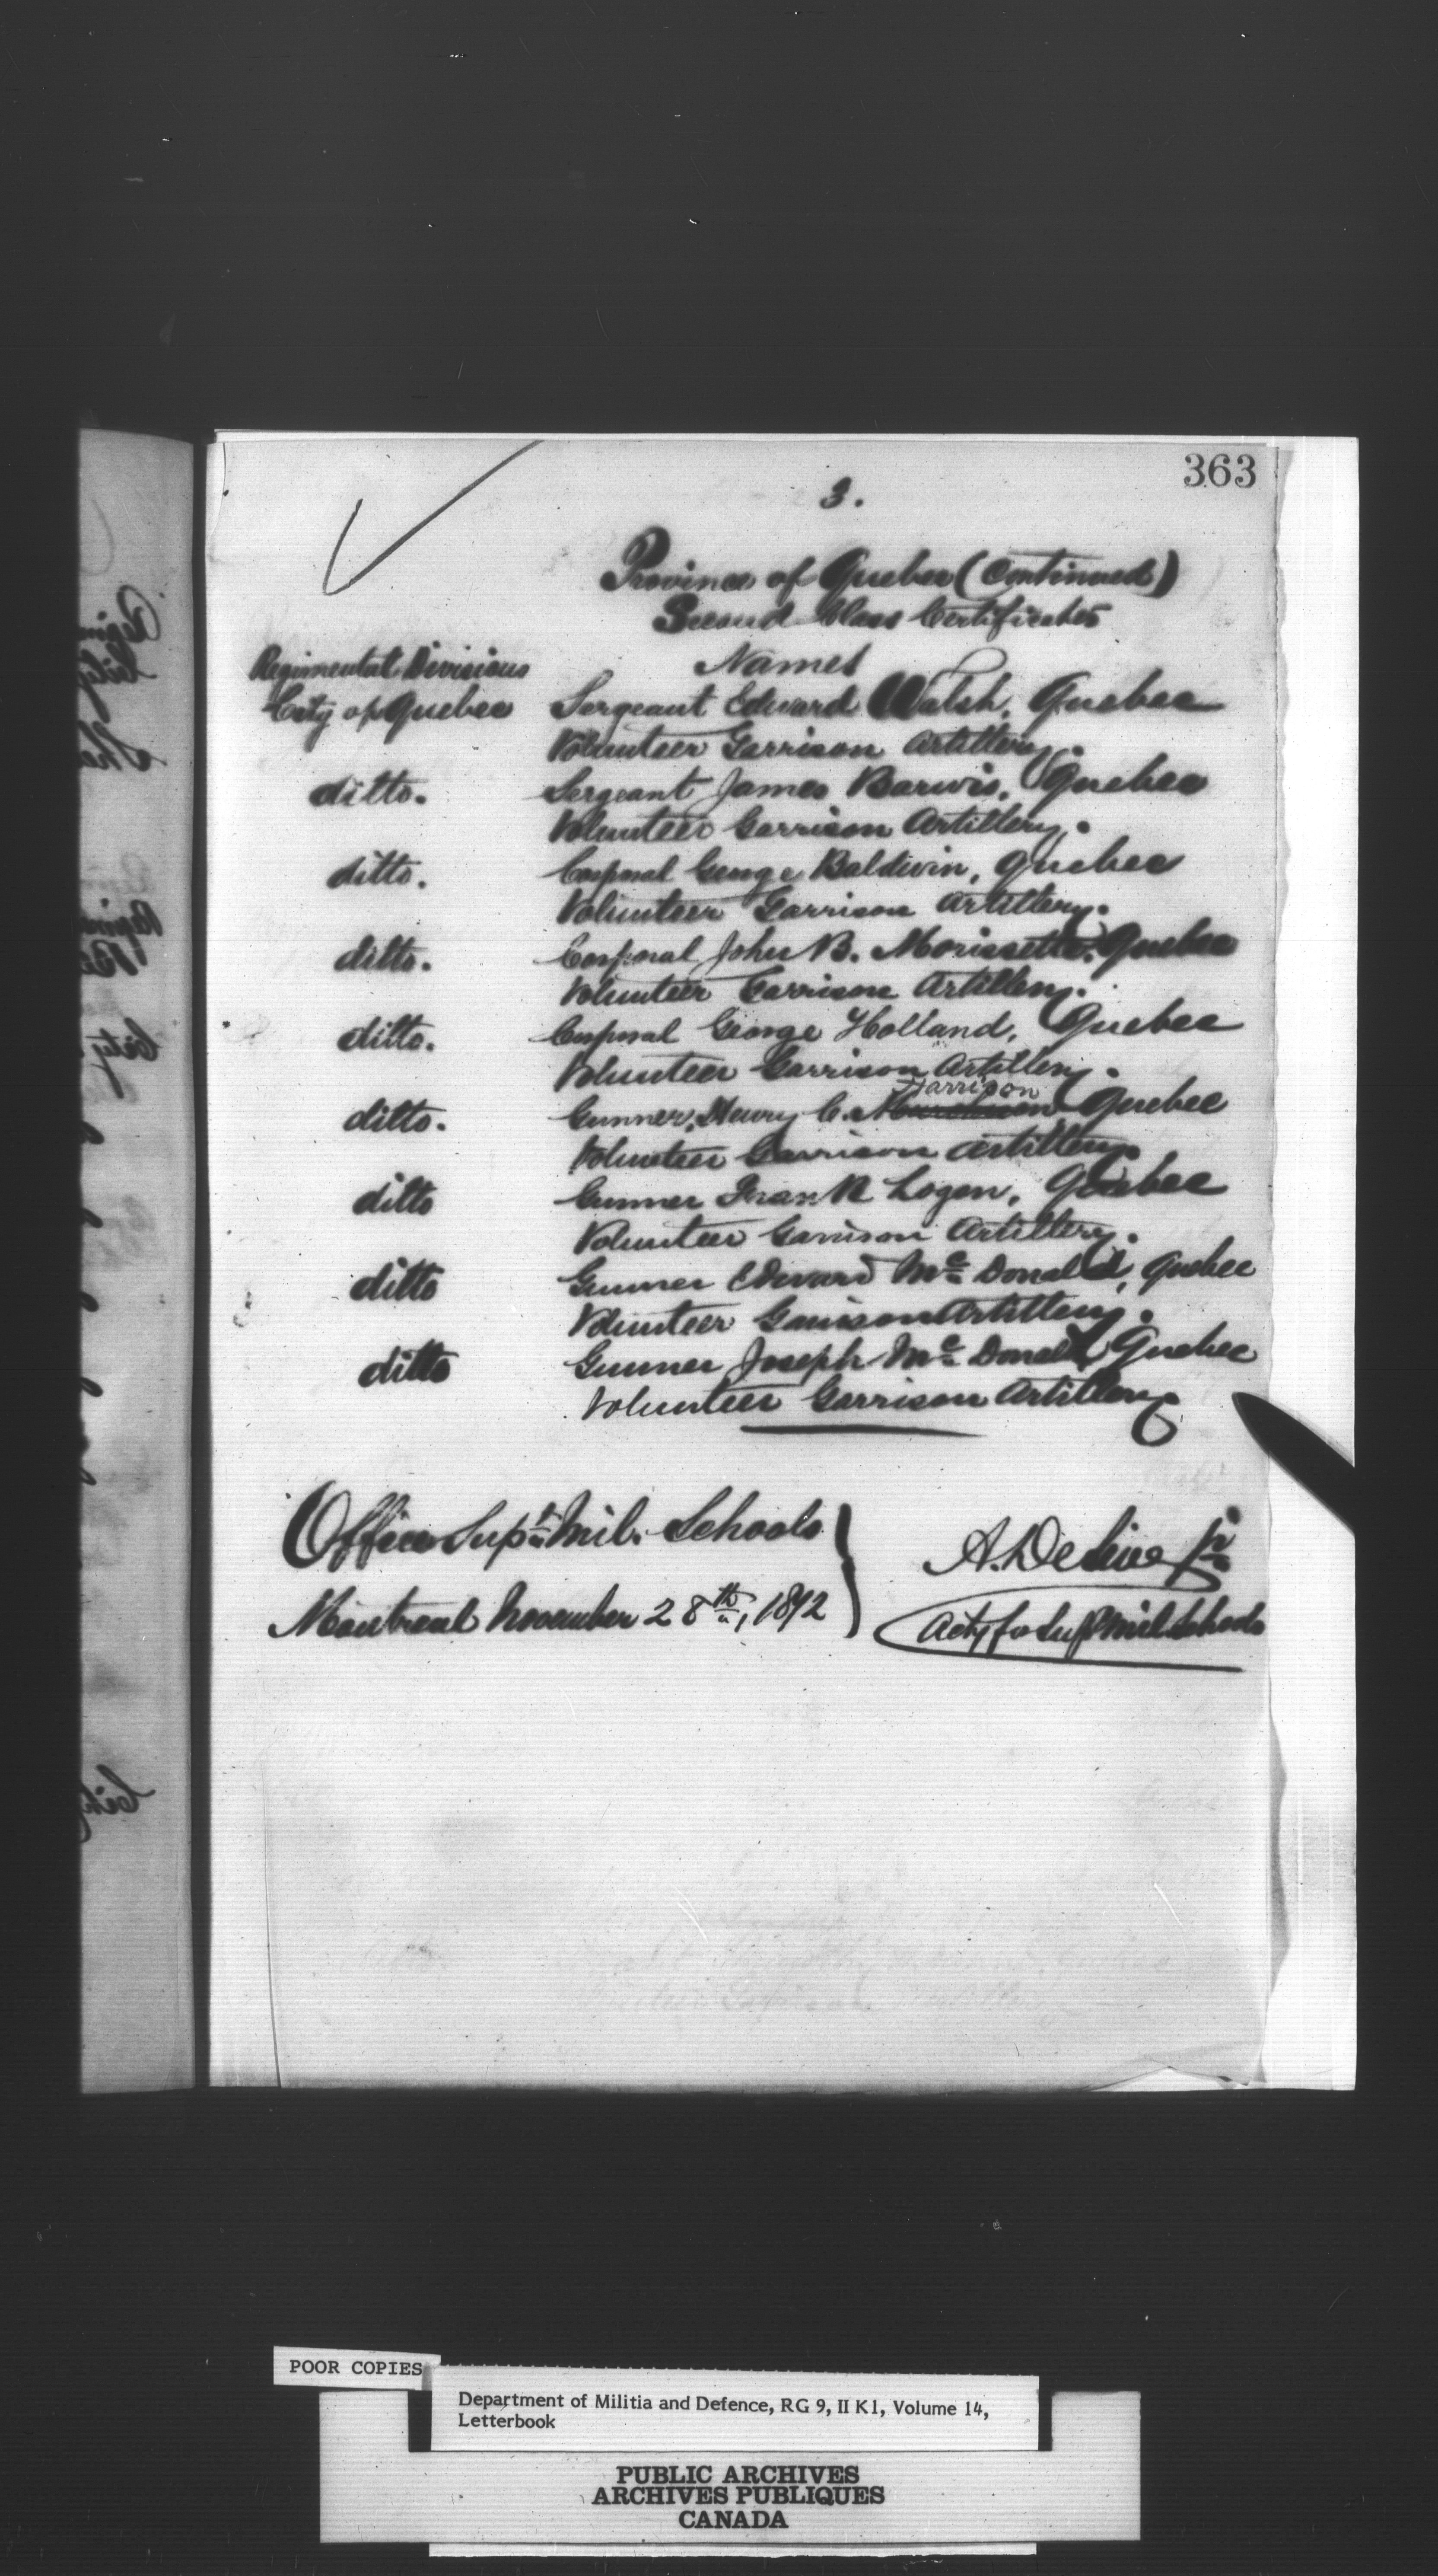 363
3.
Province of Quebec (Continued)
Second Class Certificates
Regimental Divisions Names
City of Quebec Sergeant Edward Walsh, Quebec
Volunteer Garrison Artillery.
ditto. Sergeant James Barwis, Quebec
Volunteer Garrison Artillery.
ditto. Corporal George Baldwin, Quebec
Volunteer Garrison Artillery.
ditto. Corporal John B. Morissette, Quebec
Volunteer Garrison Artillery.
ditto. Corporal George Holland, Quebec
Volunteer Garrison Artillery.
Harrison
ditto. Gunner, Henry C. Quebec
Volunteer Garrison Artillery.
ditto Gunner Frank Logan, Quebec
Volunteer Garrison Artillery.
ditto Gunner Edward Mc Donald, Quebec
Volunteer Garrison Artillery.
ditto Gunner Joseph Mc Donald Quebec
Volunteer Garrison Artillery
Office Supt. Mil. Schools
Montreal November 28th, 1872
A.
Actg for Supt Mil Schools
POOR COPIES
Department of Militia and Defence, RG 9, II K1, Volume 14,
Letterbook
PUBLIC ARCHIVES
ARCHIVES PUBLIQUES
CANADA